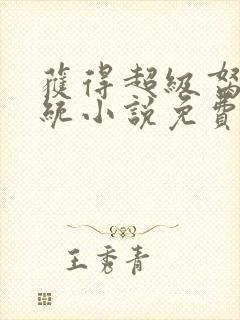 獲得超級
統小說免費
王秀青